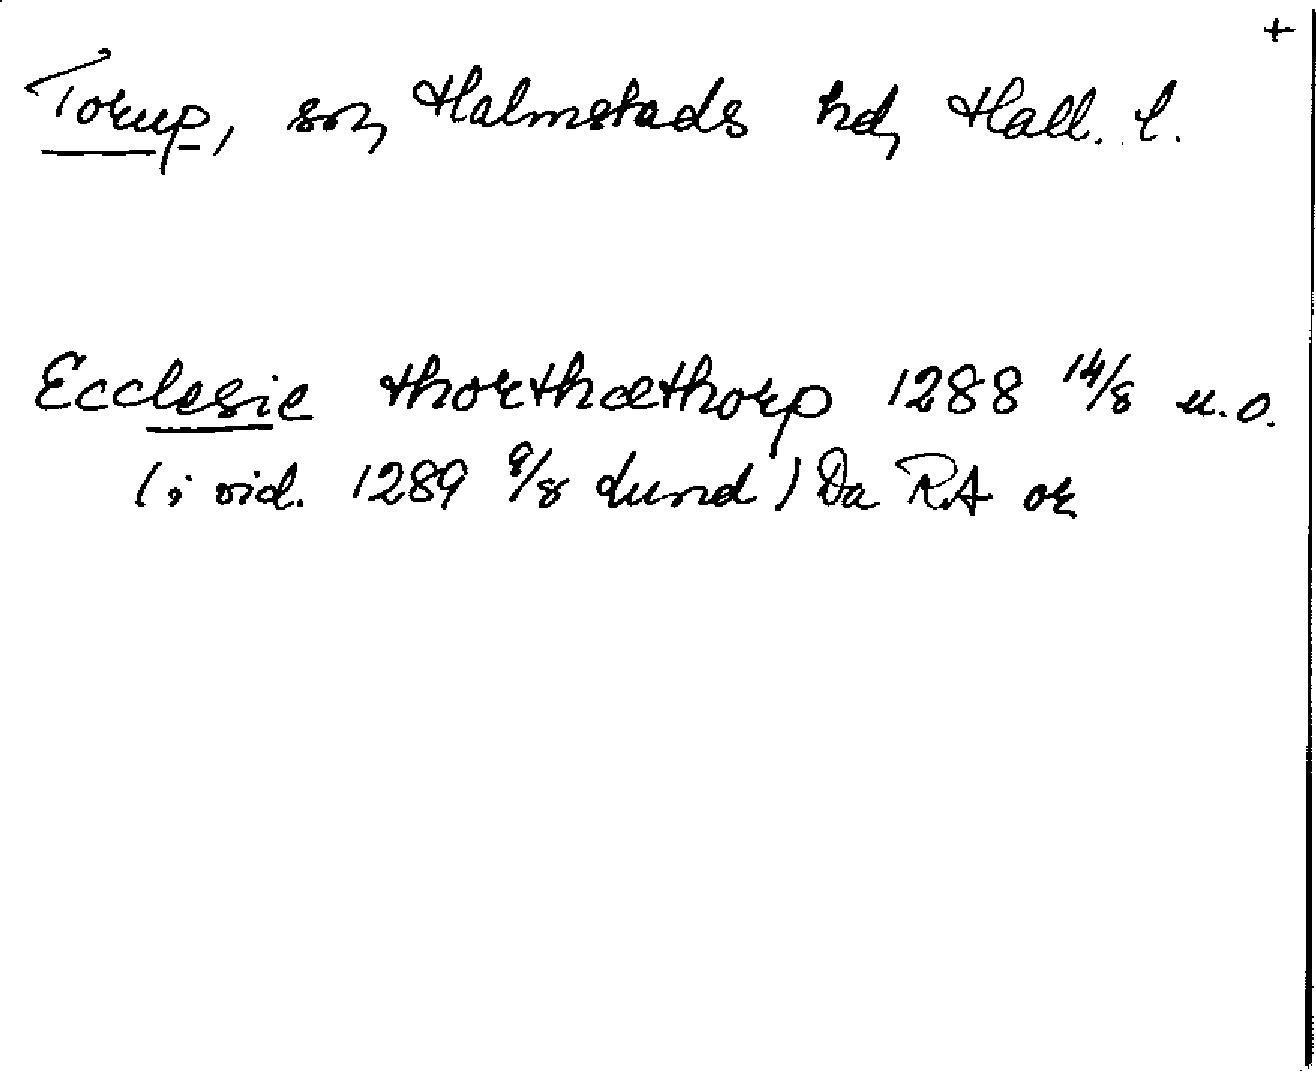 +
Torup, sn, Halmstads hd, Hall. l.
Ecclesie thorthæthorp 1288 14/8 u.o.
(i vid. 1289 9/8 Lund) Da RA or